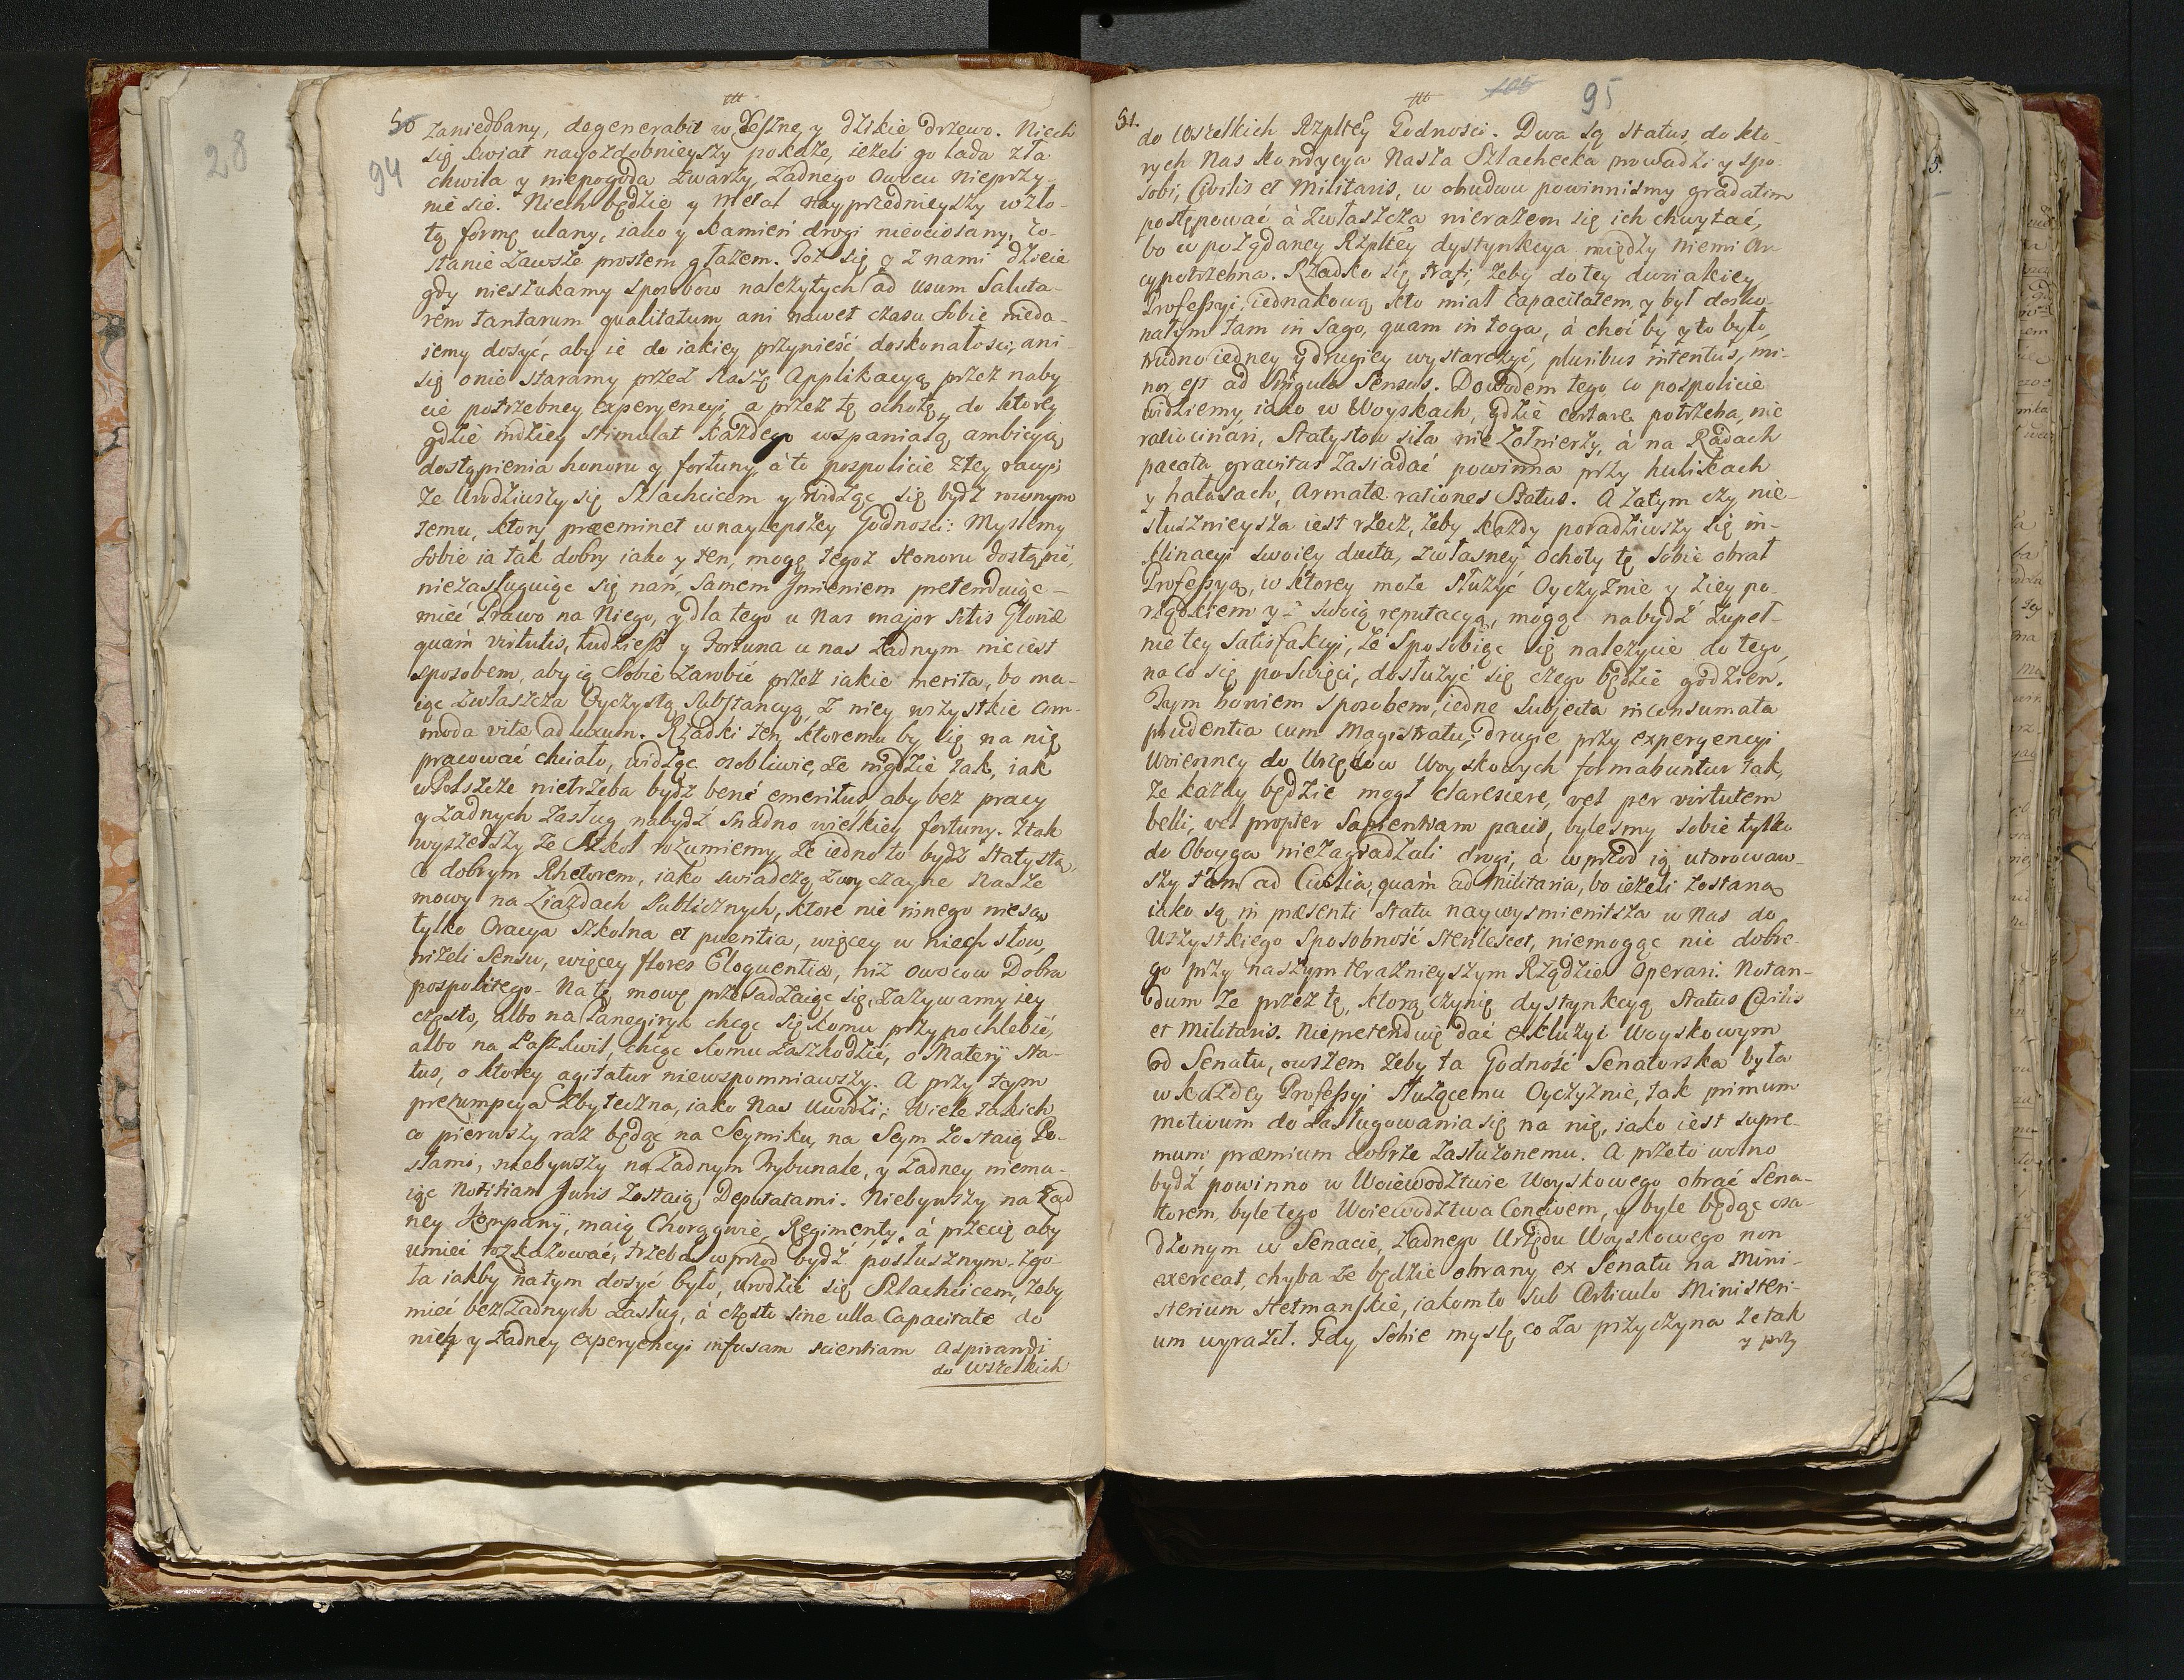 50
94
28
zaniedbany, degenerabit w Leszne y dzikie drzewo. Niech
się kwiat nayozdobnieyszy pokaże, ieżeli go lada zła
chwila y niepogoda zwarzy, żadnego owocu nieprzy-
nie sie. Niech będzie y metal nayprzednieyszy w zło-
tą formę ulany, iako y kamień drogi nieociosany, zo-
stanie zawsze prostem głazem. Toż się y z nami dzieie
gdy nieszukamy sposobow należytych ad usum Saluta-
rem tantarum qualitatum, ani nawet czasu sobie nieda-
iemy dosyć, aby ie do iakiey przynieść doskonałości, ani
się onie staramy przez Naszę Applikacyą przez naby-
cie potrzebney experyencyi, a przez tę ochotę, do ktorey
gdzie indziey stimulat każdego wspaniałą ambicyią
dostąpienia honoru y fortuny, á to pospolicie z tey racyi
że Urodziwszy się Szlachcicem y widząc się bydz rownym
temu, ktory præeminet w naylepszey Godności: Myslemy
sobie ia tak dobry iako y ten, mogę tegoż Honoru dostąpić,
niezasługuiąc się nań, samem Jmieniem pretenduiąc
mieć Prawo na Niego, y dla tego u Nas major sitis Gloriæ
quam virtutis, tudziesz y Fortuna u nas żadnym nieiest
sposobem, aby ią Sobie zarobić przez iakie merita, bo ma-
iąc zwłaszcza Oyczystą Substancyą, z niey wszystkie com-
moda vitæ ad luxum. Rzadki ten, ktoremu by się na nię
pracować chciało, widząc osobliwie, że nigdzie tak, iak
w Polszcze nietrzeba bydz bené emeritus aby bez pracy
y żadnych zasług nabydź snadno wielkiey fortuny. Ztak
wyszedszy ze Szkoł rozumiemy, że iedno to bydz Statystą,
Co dobrym Rhetorem, iako swiadczą zwyczayne Nasze
mowy na Ziazdach Publicznych, ktore nic innego niesą
tylko Oracya szkolna et pueritia, więcey w niech słow,
niżeli sensu, więcey flores Eloquentiæ, niż owocow Dobra
pospolitego. Na tę mowę przesadzaiąc się, zażywamy iey
często, albo na Panegiryk chcąc się komu przypochlebić,
albo na Paszkwil, chcąc komu zaszkodzić, o Materÿ sta-
tus, o ktorey agitatur niewspomniawszy. A przy tym
prezumpcya zbyteczna, iako Nas uwodzi; Wiele takich
co pierwszy raz będąc na Seymiku, na Seym zostaią Po-
słami, niebywszy na żadnym Trybunale, y żadney niema-
iąc Notitiam Juris zostaią Deputatami. Niebywszy na żad
ney Kompanÿ, maią Chorągwie, Regimenty, á przecię aby
umieć rozkazować, trzeba wprzod bydź posłusznym. Zgo-
ła iakby natym dosyć było, urodzić się Szlachcicem, żeby
mieć bez żadnych zasług, á często sine ulla Capacitate do
nich y żadney experyencyi infusam scientiam aspirandi
do wszelkich
51.
105
95
do Wszelkich Rzpltey Godności. Dwa są status, do kto-
rych Nas kondycya Nasza Szlachecka prowadzi y spo-
sobi, Civilis et Militaris, w obudwu powinnismy gradatim
postępować á zwłaszcza nierazem się ich chwytać,
bo w pożądaney Rzpltey dystynkcya między niemi ar-
cypotrzebna. Rzadko się trafi, żeby do tey dwoiakiey
Professyi, iednakową kto miał capacitatem, y był dosko-
nałym tam in Sago, quam in toga, á choć by y to było,
trudno iedney y drugiey wystarczyć, pluribus intentus, mi-
nor est ad Singula Sensus. Dowodem tego, co pospolicie
widziemy, iako w Woyskach, gdzie certare potrzeba, nie
ratiocinari, Statystow siła nie Zołnierzy, á na Radach
pacata gravitas zasiadać powinna przy hulikach
y hałasach, Armatæ rationes Status. A zatym czy nie-
słusznieysza iest rzecz, żeby każdy poradziwszy się in-
klinacyi swoiey ducta, zwłasney ochoty tę sobie obrał
Professyą, w ktorey może służyć Oyczyznie y ziey po-
rządkiem y z swoią reputacyą, mogąc nabydź zupeł-
nie tey satisfakcyi, że sposobiąc się należycie do tego,
na co się poswięci, dosłużyć się czego będzie godzien.
Tym bowiem sposobem, iedne Subjecta in consumata
prudentia cum Magistratu, drugie przy experyencyi
Woienney do Urzędow Woyskowych formabuntur tak,
że każdy będzie mogł clarescere, vel per virtutem
belli, vel propter Sapientiam pacis, bylesmy sobie tylko
do Oboyga niezagradzali drogi, á wprzod ią utorowaw-
szy tam ad Civilia, quam ad Militaria, bo ieżeli zostaną
iako są in præsenti statu naywysmienitsza w Nas do
Wszystkiego sposobność sterilescet, niemogąc nic dobre-
go przy naszym teraznieyszym Rządzie operari. Notan-
dum że przez tę, ktorą czynię dystynkcyą Status Civilis
et Militaris. Niepretenduię dać exkluzyi Woyskowym
od Senatu, owszem żeby ta Godność Senatorska była
w każdey Professyi służącemu Oyczyznie, tak primum
motivum do zasługowania się na nię, iako iest supre-
mum præmium dobrze zasłużonemu. A przeto wolno
bydź powinno w Woiewodztwie Woyskowego obrać Sena-
torem, byle tego Woiewodztwa Concivem, y byle będąc osa-
dzonym w Senacie, żadnego Urzędu Woyskowego non
exerceat, chyba że będzie obrany ex Senatu na Mini-
sterium Hetmanskie, iakom to sub Articulo Ministeri-
um wyraził. Gdy sobie myslę co za przyczyna że tak
y przy